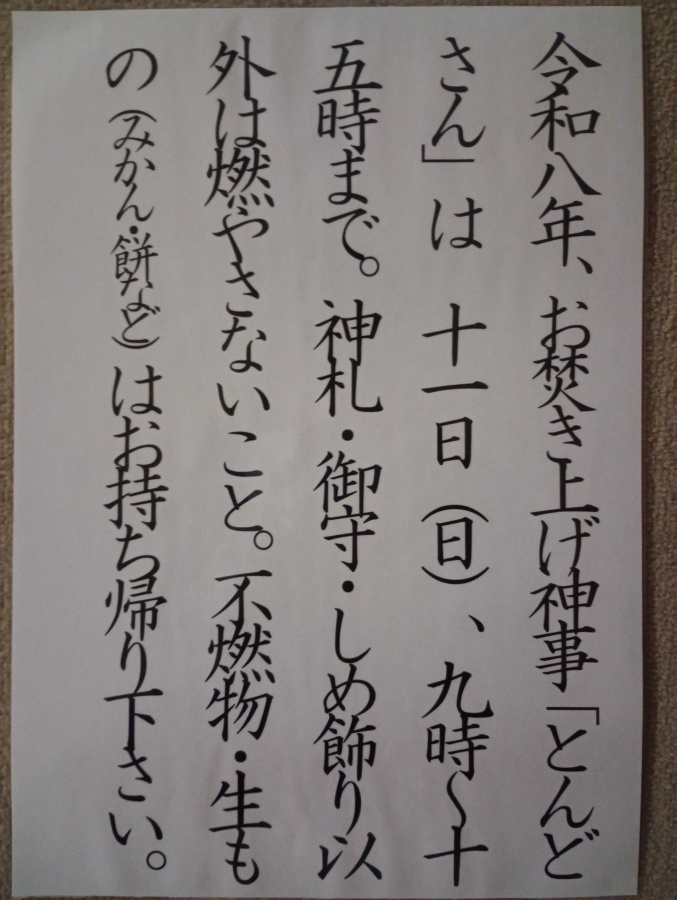 令和八年、お焚き上げ神事「とんど
さん」は 十一日(日)、九時〜十
五時まで。神札・御守・しめ飾り以
外は燃やさないこと。不燃物・生も
の(みかん・餅など)はお持ち帰り下さい。